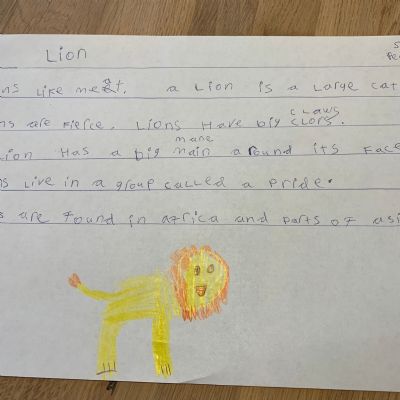 Lion
ns Like meat. a Lion is a Large cat
claws
ns are Fierce. Lions Have big clors.
mane
Lion Has a big main around its Face
ns Live in a group called a Pride.
s are found in africa and parts of asi